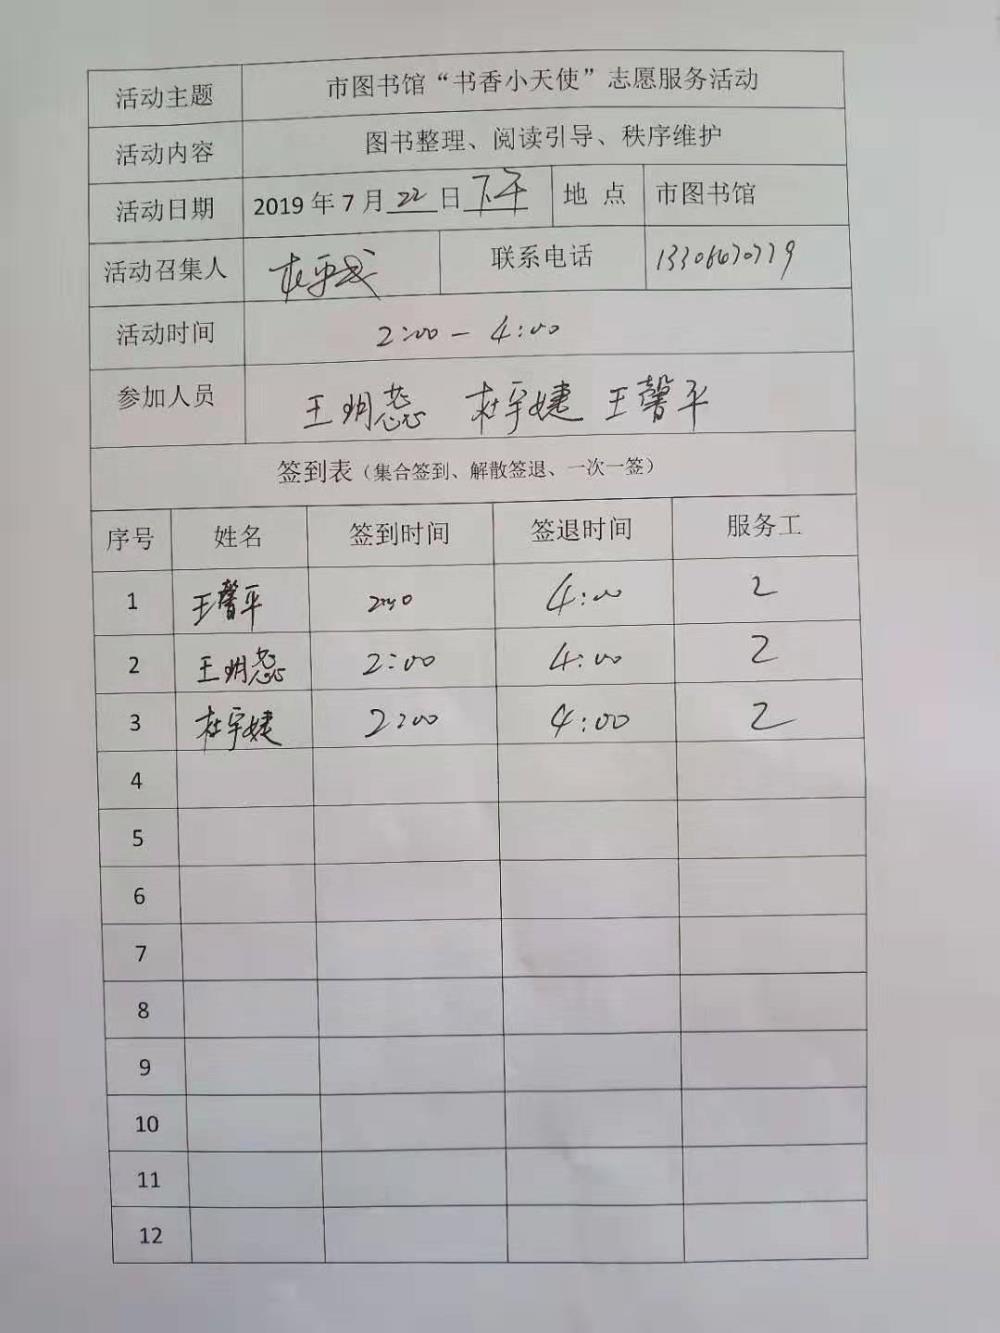 活动主题 市图书馆“书香小天使”志愿服务活动
活动内容 图书整理、阅读引导、秩序维护
活动日期 2019年7月22日下午 地 点 市图书馆
活动召集人 联系电话
活动时间 2:00-4:00
参加人员 王玥蕊 杜宇婕 王馨平
签到表（集合签到、解散签退、一次一签）
序号 姓名 签到时间 签退时间 服务工
1 王馨平 2:00 4:00 2
2 王玥蕊 2:00 4:00 2
3 杜宇婕 2:00 4:00 2
4
5
6
7
8
9
10
11
12